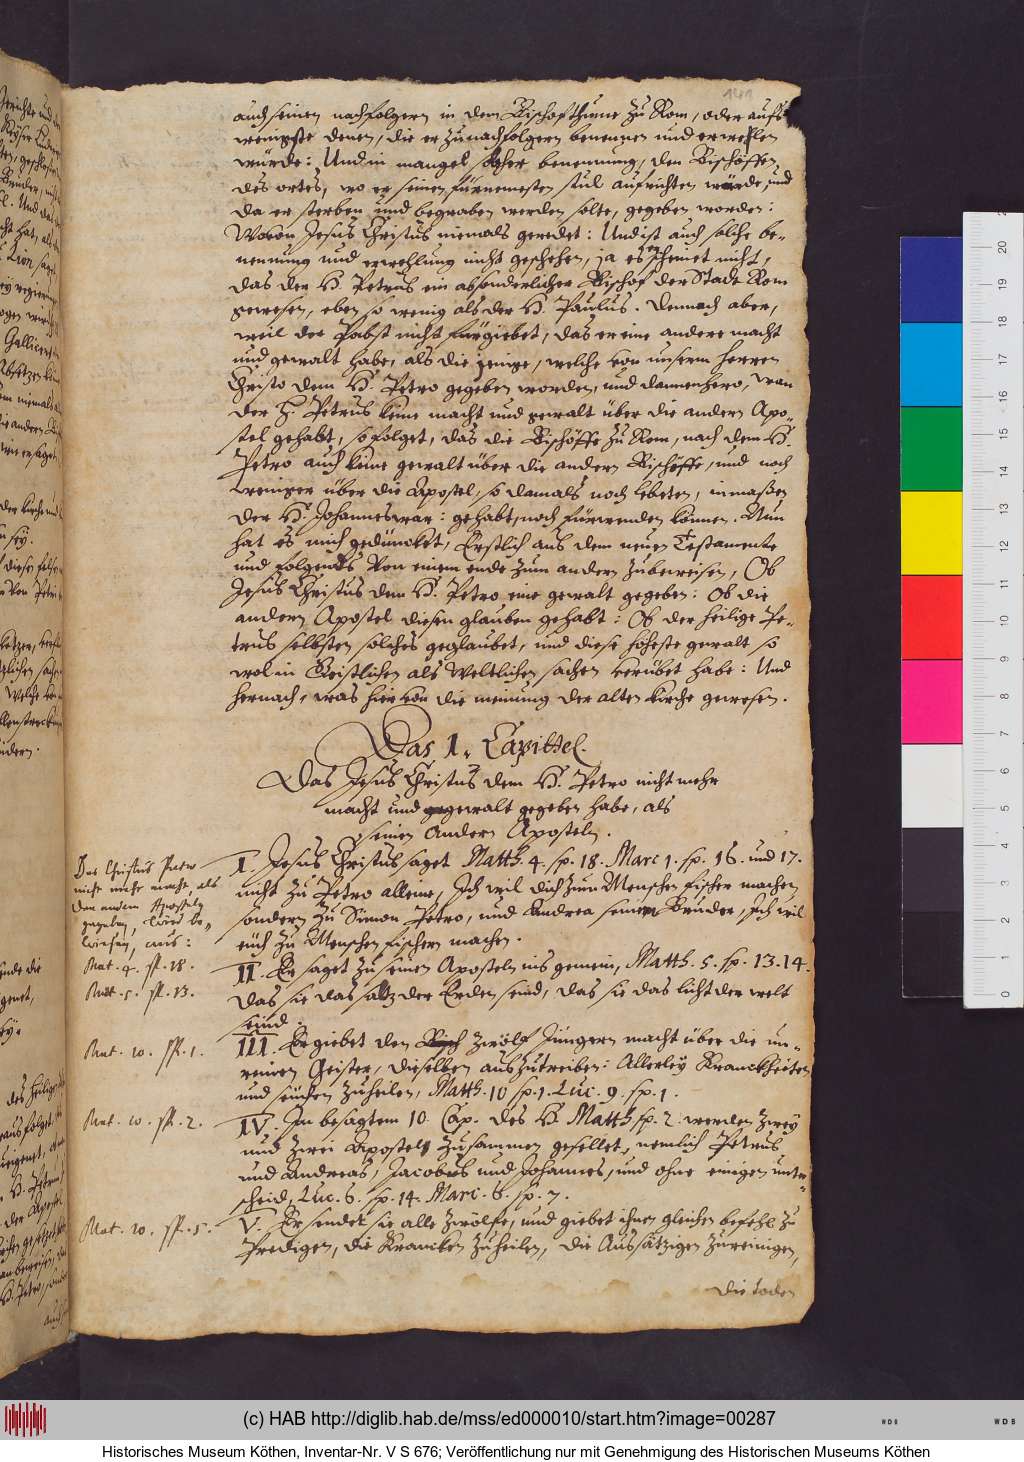 141
auch seinen nachfolgern in dem Bischofthume zu Rom, oder aufs
wenigste denen, die er zu nachfolgern benennen und erwehlen
würde: Und in mangel solcher benennung, den Bischöffen
des ortes, wo er seinen fürnemesten stul aufrichten würde, und
da er sterben und begraben werden solte, gegeben worden:
Wovon Jesus Christus niemals geredet: Und ist auch solche be-
nennung und erwehlung nicht geschehen, ja es erscheinet nicht,
das der H. Petrus ein absonderlicher Bischof der Stadt Rom
gewesen, eben so wenig als der H. Paulus. Dennach aber,
weil der Pabst nicht fürgiebet, das er eine andere macht
und gewalt habe, als die jenige, welche von unserm Herren
Christo dem H. Petro gegeben worden, und dannenhero, wan
der H. Petrus keine macht und gewalt über die andern Apo-
stel gehabt, so folget, das die Bischöffe zu Rom, nach dem H.
Petro auch keine gewalt über die andern Bischöffe, und noch
weniger über die Apostel, so damals noch lebeten, inmaßen
der H. Johannes war: gehabt, noch fürwenden können. Nun
hat es mich gedüncket, Erstlich aus dem neuen Testamente
und folgends von einem ende zum andern zubeweisen, Ob
Jesus Christus dem H. Petro eine gewalt gegeben: Ob die
andern Apostel diesen glauben gehabt: Ob der heilige Pe-
trus selbsten solches geglaubet, und diese höheste gewalt so
wol in Geistlichen als Weltlichen sachen verübet habe: Und
hernach, was hiervon die meinung der alten kirche gewesen.
Das 1. Capittel.
Das Jesus Christus dem H. Petro nicht mehr
macht und gewalt gegeben habe, als
seinen Andern Aposteln.
Das Christus Petro
nicht mehr macht, als
den andern Aposteln
gegeben, wird be-
wiesen, aus:
I. Jesus Christus saget Matth. 4. sp. 18. Marc 1. sp. 16. und 17.
nicht zu Petro alleine, Ich wil dich zum Menschen fischer machen
sondern zu Simon Petro, und Andrea seinem Bruder, Ich wil
euch zu Menschen fischern machen.
Mat. 4. sp. 18.
II. Er saget zu seinen Aposteln ins gemein, Matth. 5. sp. 13. 14.
Mat. 5. sp. 13.
das sie das saltz der Erden seind, das sie das licht der welt
seind.
Mat. 10. sp. 1.
III. Er giebet den zwölf Jüngern macht über die un-
reinen Geister, dieselben auszutreiben: Allerley Kranckheiten
und seuchen zuheilen, Matth. 10 sp. 1. Luc. 9. sp. 1.
Mat. 10. sp. 2.
IV. Im besagtem 10 Cap. des H. Matth. sp. 2. werden zwey
und zwei Apostel zusammen gesellet, nemlich Petrus
und Andreas, Jacobus und Johannes, und ohne einigen unter-
scheid, Luc. 6. sp. 14. Marc. 6. sp. 7.
Mat. 10. sp. 5.
V. Er sendet sie alle zwölfe, und giebet ihnen gleichen befehl zu
Predigen, die Krancken zuheilen, die Aussätzigen zureinigen,
die todten
(c) HAB http://diglib.hab.de/mss/ed000010/start.htm?image=00287
Historisches Museum Köthen, Inventar-Nr. V S 676; Veröffentlichung nur mit Genehmigung des Historischen Museums Köthen